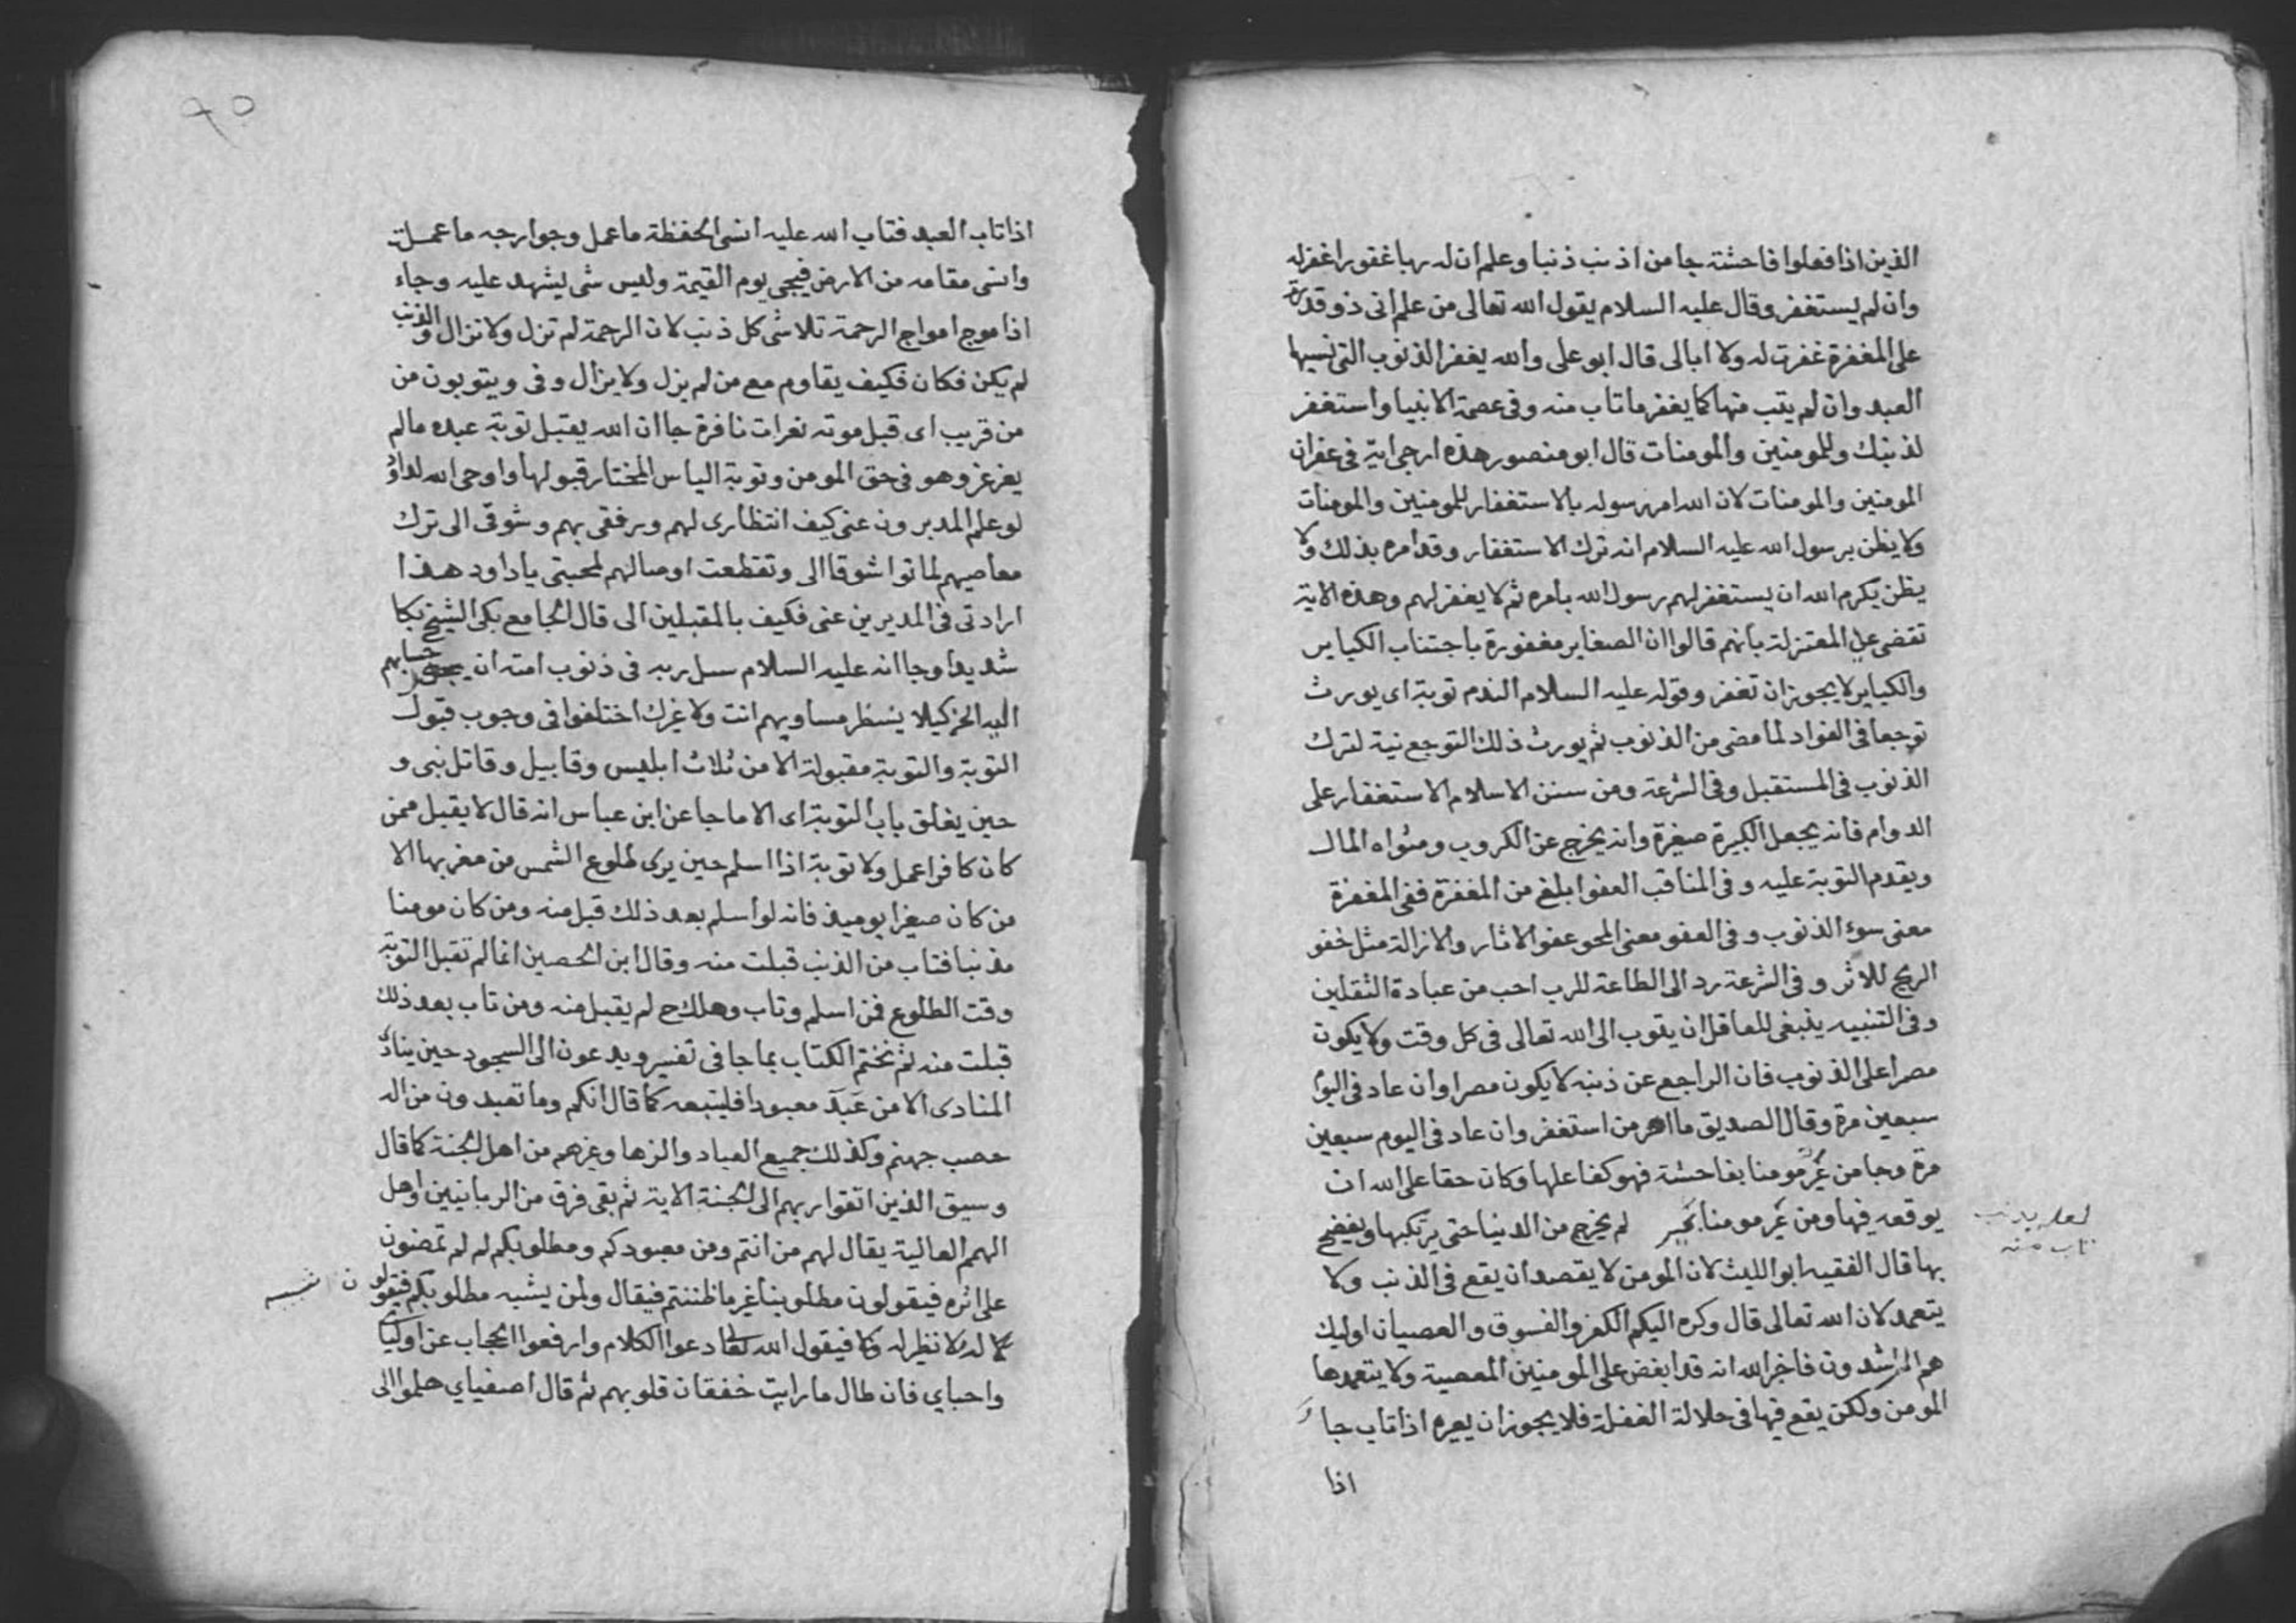 الذين اذا فعلوا فاحشته جا من اذنب ذنبا وعلم ان له ربا غفورا غفر له
وان لم يستغفر وقال عليه السلام يقول الله تعالى من علم انى ذو قدرة
على المغفرة غفرت له ولا ابالى قال ابو على والله يغفر الذنوب التى نسيها
العبد وان لم يتب منها كما يغفر ما تاب منه وفى عصمة الانبيا واستغفر
لذنبك وللمومنين والمومنات قال ابو منصور هذه ارجى اية فى غفران
المومنين والمومنات لان الله امر رسوله بالاستغفار للمومنين والمومنات
ولا يظن برسول الله عليه السلام انه ترك الاستغفار وقد امره بذلك ولا
يظن بكرم الله ان يستغفر لهم رسول الله بامره ثم لا يغفر لهم وهذه الاية
تقضى على المعتزلة بانهم قالوا ان الصغاير مغفورة باجتناب الكباير
والكباير لا يجوز ان تغفر وقوله عليه السلام الندم توبة اى يورث
توجعا فى الفواد لما مضى من الذنوب ثم يورث ذلك التوجع نية لترك
الذنوب فى المستقبل وفى الشرعة ومن سنن الاسلام الاستغفار على
الدوام فانه يجعل الكبيرة صغيرة وانه يخرج عن الكروب ومثواه المال
ويقدم التوبة عليه وفى المناقب العفو ابلغ من المغفرة ففى المغفرة
معنى سوء الذنوب وفى العفو معنى المحو عفو الاثار والازالة مثل عفو
الريح للاثر وفى الشرعة رد الى الطاعة للرب احب من عبادة الثقلين
وفى التنبيه ينبغى للعاقل ان يتوب الى الله تعالى فى كل وقت ولا يكون
مصرا على الذنوب فان الراجع عن ذنبه لا يكون مصرا وان عاد فى اليوم
سبعين مرة وقال الصديق ما اصر من استغفر وان عاد فى اليوم سبعين
مرة وجا من عير مومنا بفاحشة فهو كفاعلها وكان حقا على الله ان
يوقعه فيها ومن عير مومنا لم يخرج من الدنيا حتى يرتكبها ويفضح
لعله بذنب
تاب منه
بها قال الفقيه ابو الليث لان المومن لا يقصد ان يقع فى الذنب ولا
يتعمد لان الله تعالى قال وكره اليكم الكفر والفسوق والعصيان اوليك
هم الراشدون فاخبر الله انه قد ابغض على المومنين المعصية ولا يتعمدها
المومن ولكن يقع فيها فى حالة الغفلة فلا يجوز ان يعيره اذا تاب جا
اذا
٩٥
اذا تاب العبد فتاب الله عليه انسى الحفظة ما عمل وجوارحه ما عملت
وانسى مقامه من الارض فيجى يوم القيمة وليس شى يشهد عليه وجاء
اذا موج امواج الرحمة تلاشى كل ذنب لان الرحمة لم تزل ولا تزال والذنب
لم يكن فكان فكيف يقاوم مع من لم يزل ولا يزال وفى ويتوبون من
من قريب اى قبل موته جا ان الله يقبل توبة عبده مالم
يغرغر وهو فى حق المومن وتوبة الياس المختار قبولها واوحى الله لداود
لو علم المدبرون عنى كيف انتظارى لهم ورفقى بهم وشوقى الى ترك
معاصيهم لماتوا شوقا الى وتقطعت اوصالهم لمحبتى يا داود هذا
ارادتى فى المدبرين عنى فكيف بالمقبلين الى قال الجامع بكى الشيخ بكا
شديدا وجا انه عليه السلام سل ربه فى ذنوب امته ان يجعل حسابهم
اليه الخ كيلا ينظر مساويهم انت ولا غيرك اختلفوا فى وجوب قبول
التوبة والتوبة مقبولة الا من ثلاث ابليس وقابيل وقاتل نبى و
حين يغلق باب التوبة اى الا ما جا عن ابن عباس انه قال لا يقبل ممن
كان كافرا عمل ولا توبة اذا اسلم حين يرى طلوع الشمس من مغربها الا
من كان صغيرا يوميذ فانه لو اسلم بعد ذلك قبل منه ومن كان مومنا
مذنبا فتاب من الذنب قبلت منه وقال ابن الحصين انما لم تقبل التوبة
وقت الطلوع فمن اسلم وتاب وهلك ح لم يقبل منه ومن تاب بعد ذلك
قبلت منه ثم نختم الكتاب بما جا فى تفسير ويدعون الى السجود حين ينادى
المنادى الا من عبد معبودا فليتبعه كما قال انكم وما تعبدون من اله
حصب جهنم وكذلك جميع العباد والزها وغيرهم من اهل الجنة كما قال
وسيق الذين اتقوا ربهم الى الجنة الاية ثم بقى فرق من الربانيين واهل
الهمم العالية يقال لهم من انتم ومن معبودكم ومطلوبكم لم لم تمضون
على اثره فيقولون مطلوبنا غير ما ظننتم فيقال ولمن يشبه مطلوبكم فيقولون
لا نظير له فيقول الله تعالى دعوا الكلام وارفعوا الحجاب عن اوليائى
واحباي فان طال ما رايت خفقان قلوبهم ثم قال اصفياي هلموا الى